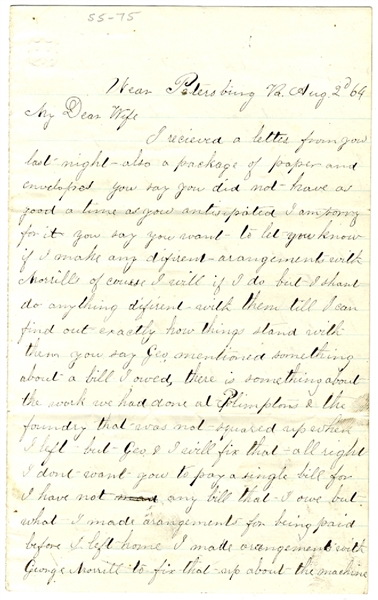 55-75
Near Petersburg Va. Aug. 2d 64
My Dear Wife
I recieved a letter from you
last night - also a package of paper and
envelopes you say you did not - have as
good a time as you antisipated I am sorry
for it you say you want - to let you know
if I make any difrent - arangement with
Morrills of course I will if I do but I shant
do anything difirent - with them till I can
find out exactly how things stand with
them you say Geo. mentioned something
about a bill I owed, there is something about
the work we had done at Plimptons & the
foundry that was not squared up when
I left - but Geo. & I will fix that - all right
I dont want you to pay a single bill for
I have not any bill that I owe but
what I made arangements for being paid
before I left home I made arangements with
George Morrill to fix that - up about the machine